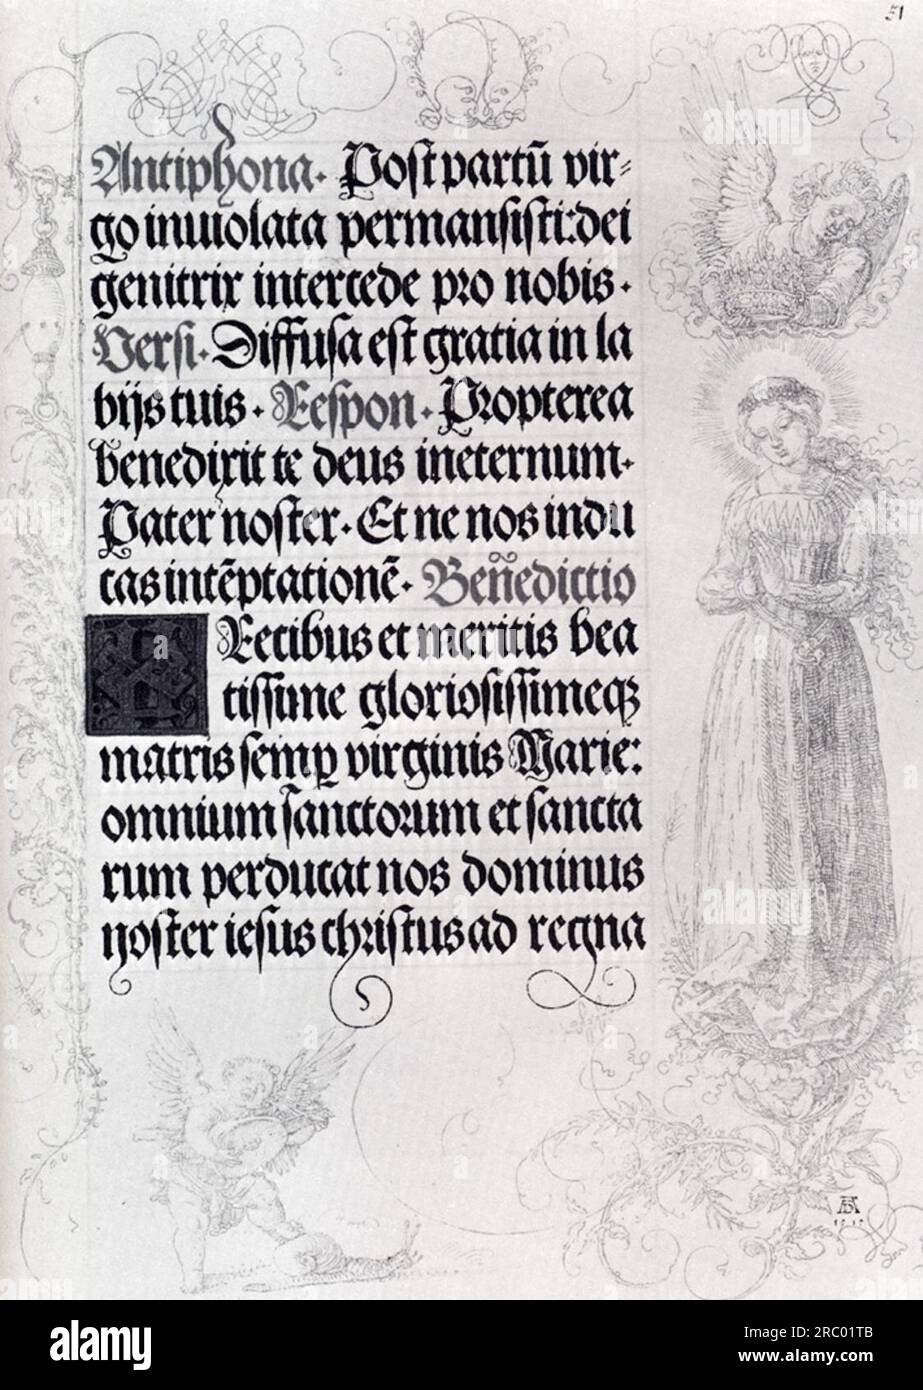 51
Antiphona. Post partū vir=
go inviolata permansisti: dei
genitrix intercede pro nobis.
Versi. Diffusa est gratia in la
bijs tuis. Respon. Propterea
benedixit te deus in eternum.
Pater noster. Et ne nos indu
cas in tēptationē. Beñedictio
Precibus et meritis bea
tissime gloriosissimeqꝫ
matris semꝑ virginis Marie:
omnium sanctorum et sancta
rum perducat nos dominus
noster iesus christus ad regna
AD
1515
alamy
Image ID: 2RC01TB
www.alamy.com